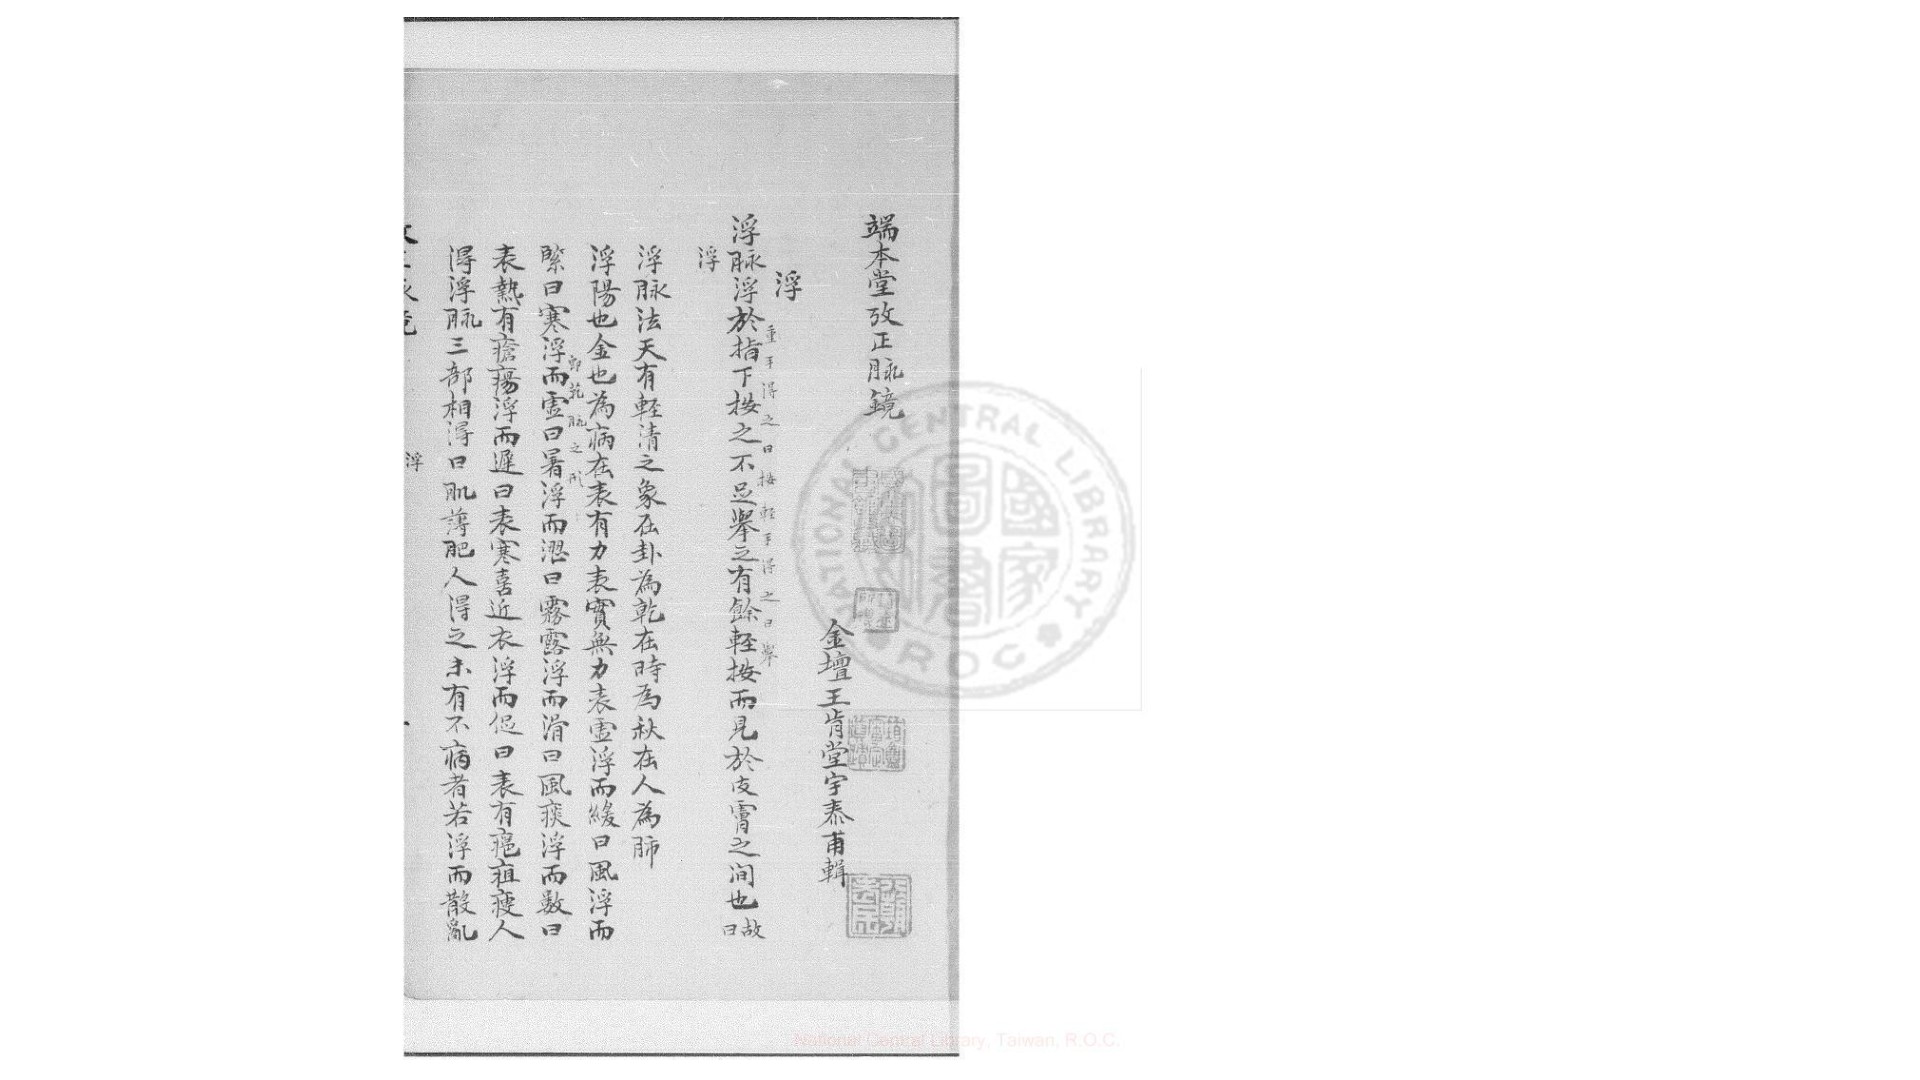 端本堂攷正脉鏡
金壇王肯堂宇泰甫輯
浮
重手得之曰按輕手得之曰舉
浮脉浮於指下按之不足舉之有餘輕按而見於皮膚之间也故曰
浮
浮脉法天有輕清之象在卦為乾在時為秋在人為肺
浮陽也金也為病在表有力表實無力表虛浮而緩曰風浮而
即芤脉之形
緊曰寒浮而虛曰暑浮而濇曰霧露浮而滑曰風痰浮而數曰
表熱有瘡瘍浮而遲曰表寒喜近衣浮而促曰表有癰疽瘦人
得浮脉三部相得曰肌薄肥人得之未有不病者若浮而散亂
浮
NATIONAL CENTRAL LIBRARY
ROC
國家圖書
National Central Library, Taiwan, R.O.C.